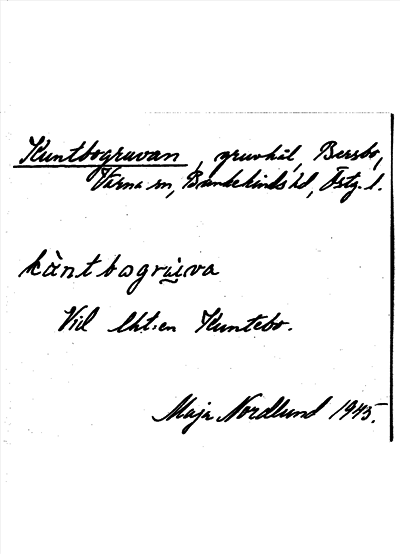 Kuntbogruvan, gruvhål, Bersbo,
Värna sn, Bankekinds hd, Östg. l.
kàntbogrùva
Vid lht:en Kuntebo.
Maja Nordlund 1945.